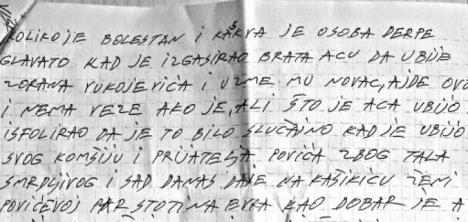 KOLIKO JE BOLESTAN I KAKVA JE OSOBA DERPE
GLAVATO KAD JE IZGASIRAO BRATA ACU DA UBIJE
ZORANA VUKOJEVIĆA I UZME MU NOVAC, AJDE OVO
I NEMA VEZE AKO JE, ALI ŠTO JE ACA UBIJO
ISFOLIRAO DA JE TO BILO SLUČAJNO KAD JE UBIJO
SVOG KOMŠIJU I PRIJATELJA POVIĆA ZBOG TALA
SMRDLJIVOG I SAD DANAS DAJE NA KAŠIKICU ŽENI
POVIĆEVOJ PAR STOTINA EVRA KAO DOBAR JE A